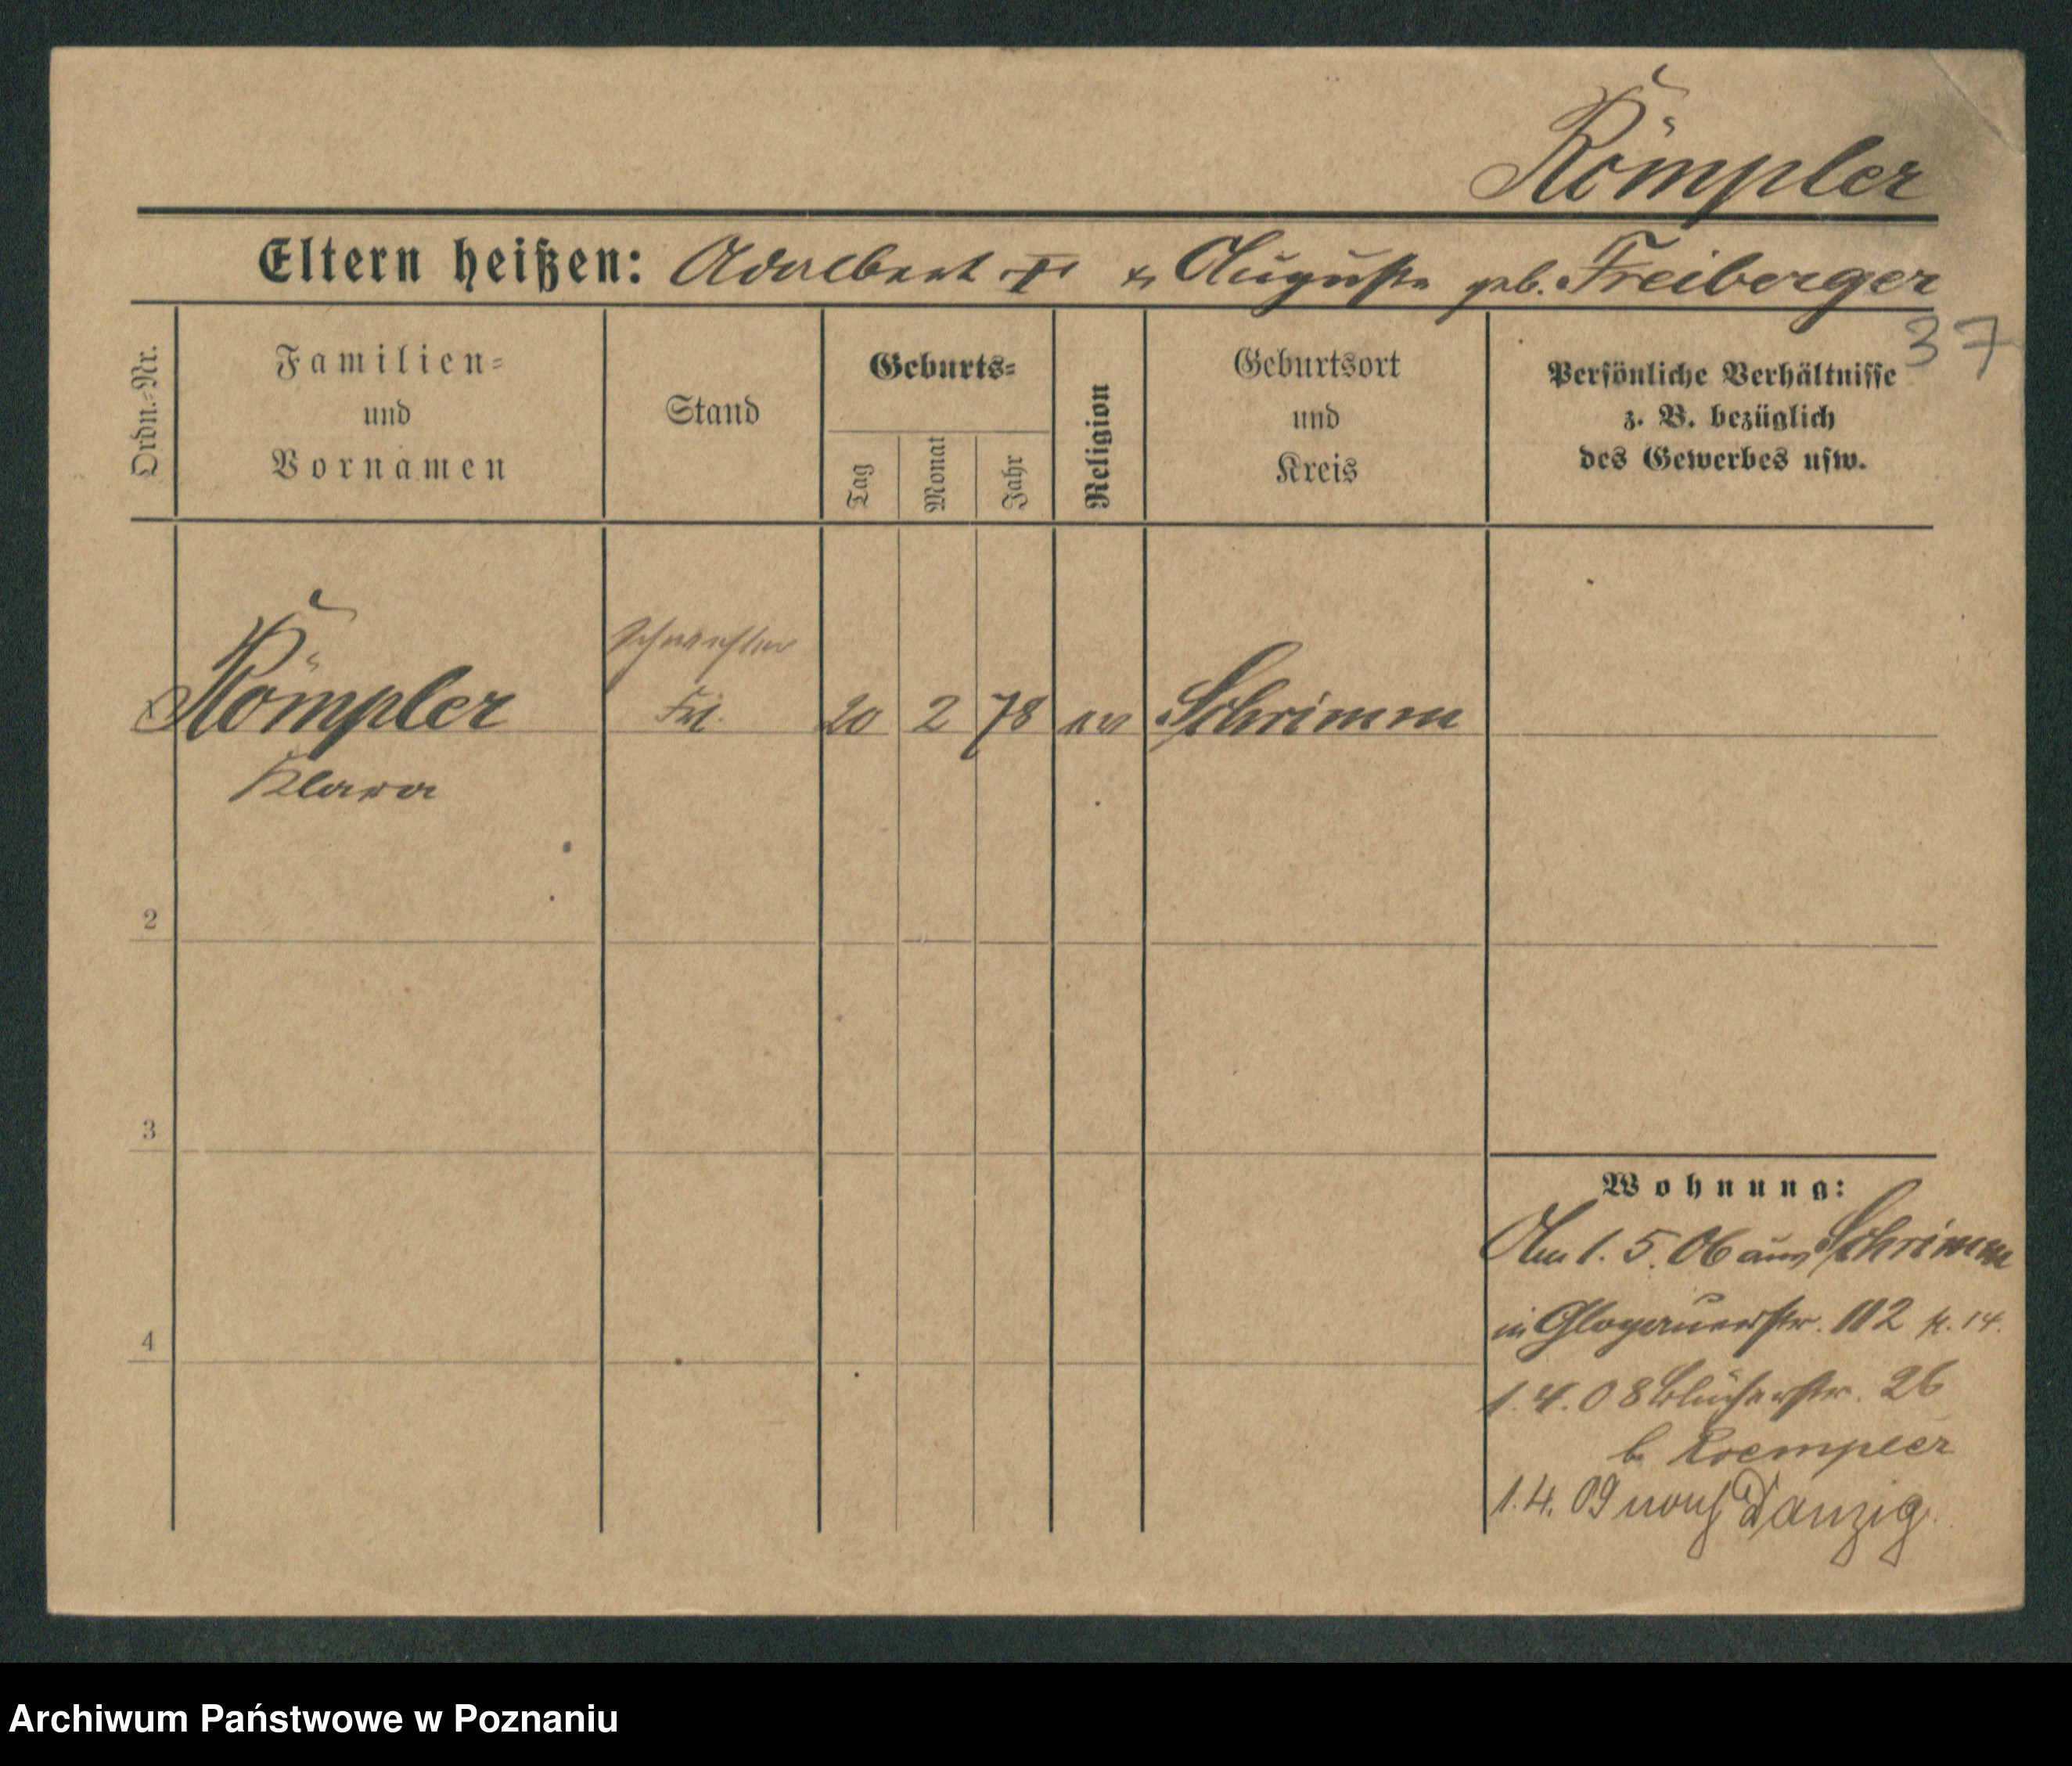 Römpler
Eltern heißen: Adalbert R & Auguste geb. Freiberger
37
Ordn.-Nr.
Familien-
und
Vornamen
Stand
Geburts-
Tag
Monat
Jahr
Religion
Geburtsort
und
Kreis
Persönliche Verhältnisse
z. B. bezüglich
des Gewerbes usw.
Schwester
Römpler Frl. 20 2 78 ev Schrimm
Klara
2
3
4
Wohnung:
Am 1. 5. 06 aus Schrimm
in Glogauerstr. 112 14.
1. 4. 08 Blücherstr. 26
b. Roempler
1. 4. 09 nach Danzig.
Archiwum Państwowe w Poznaniu